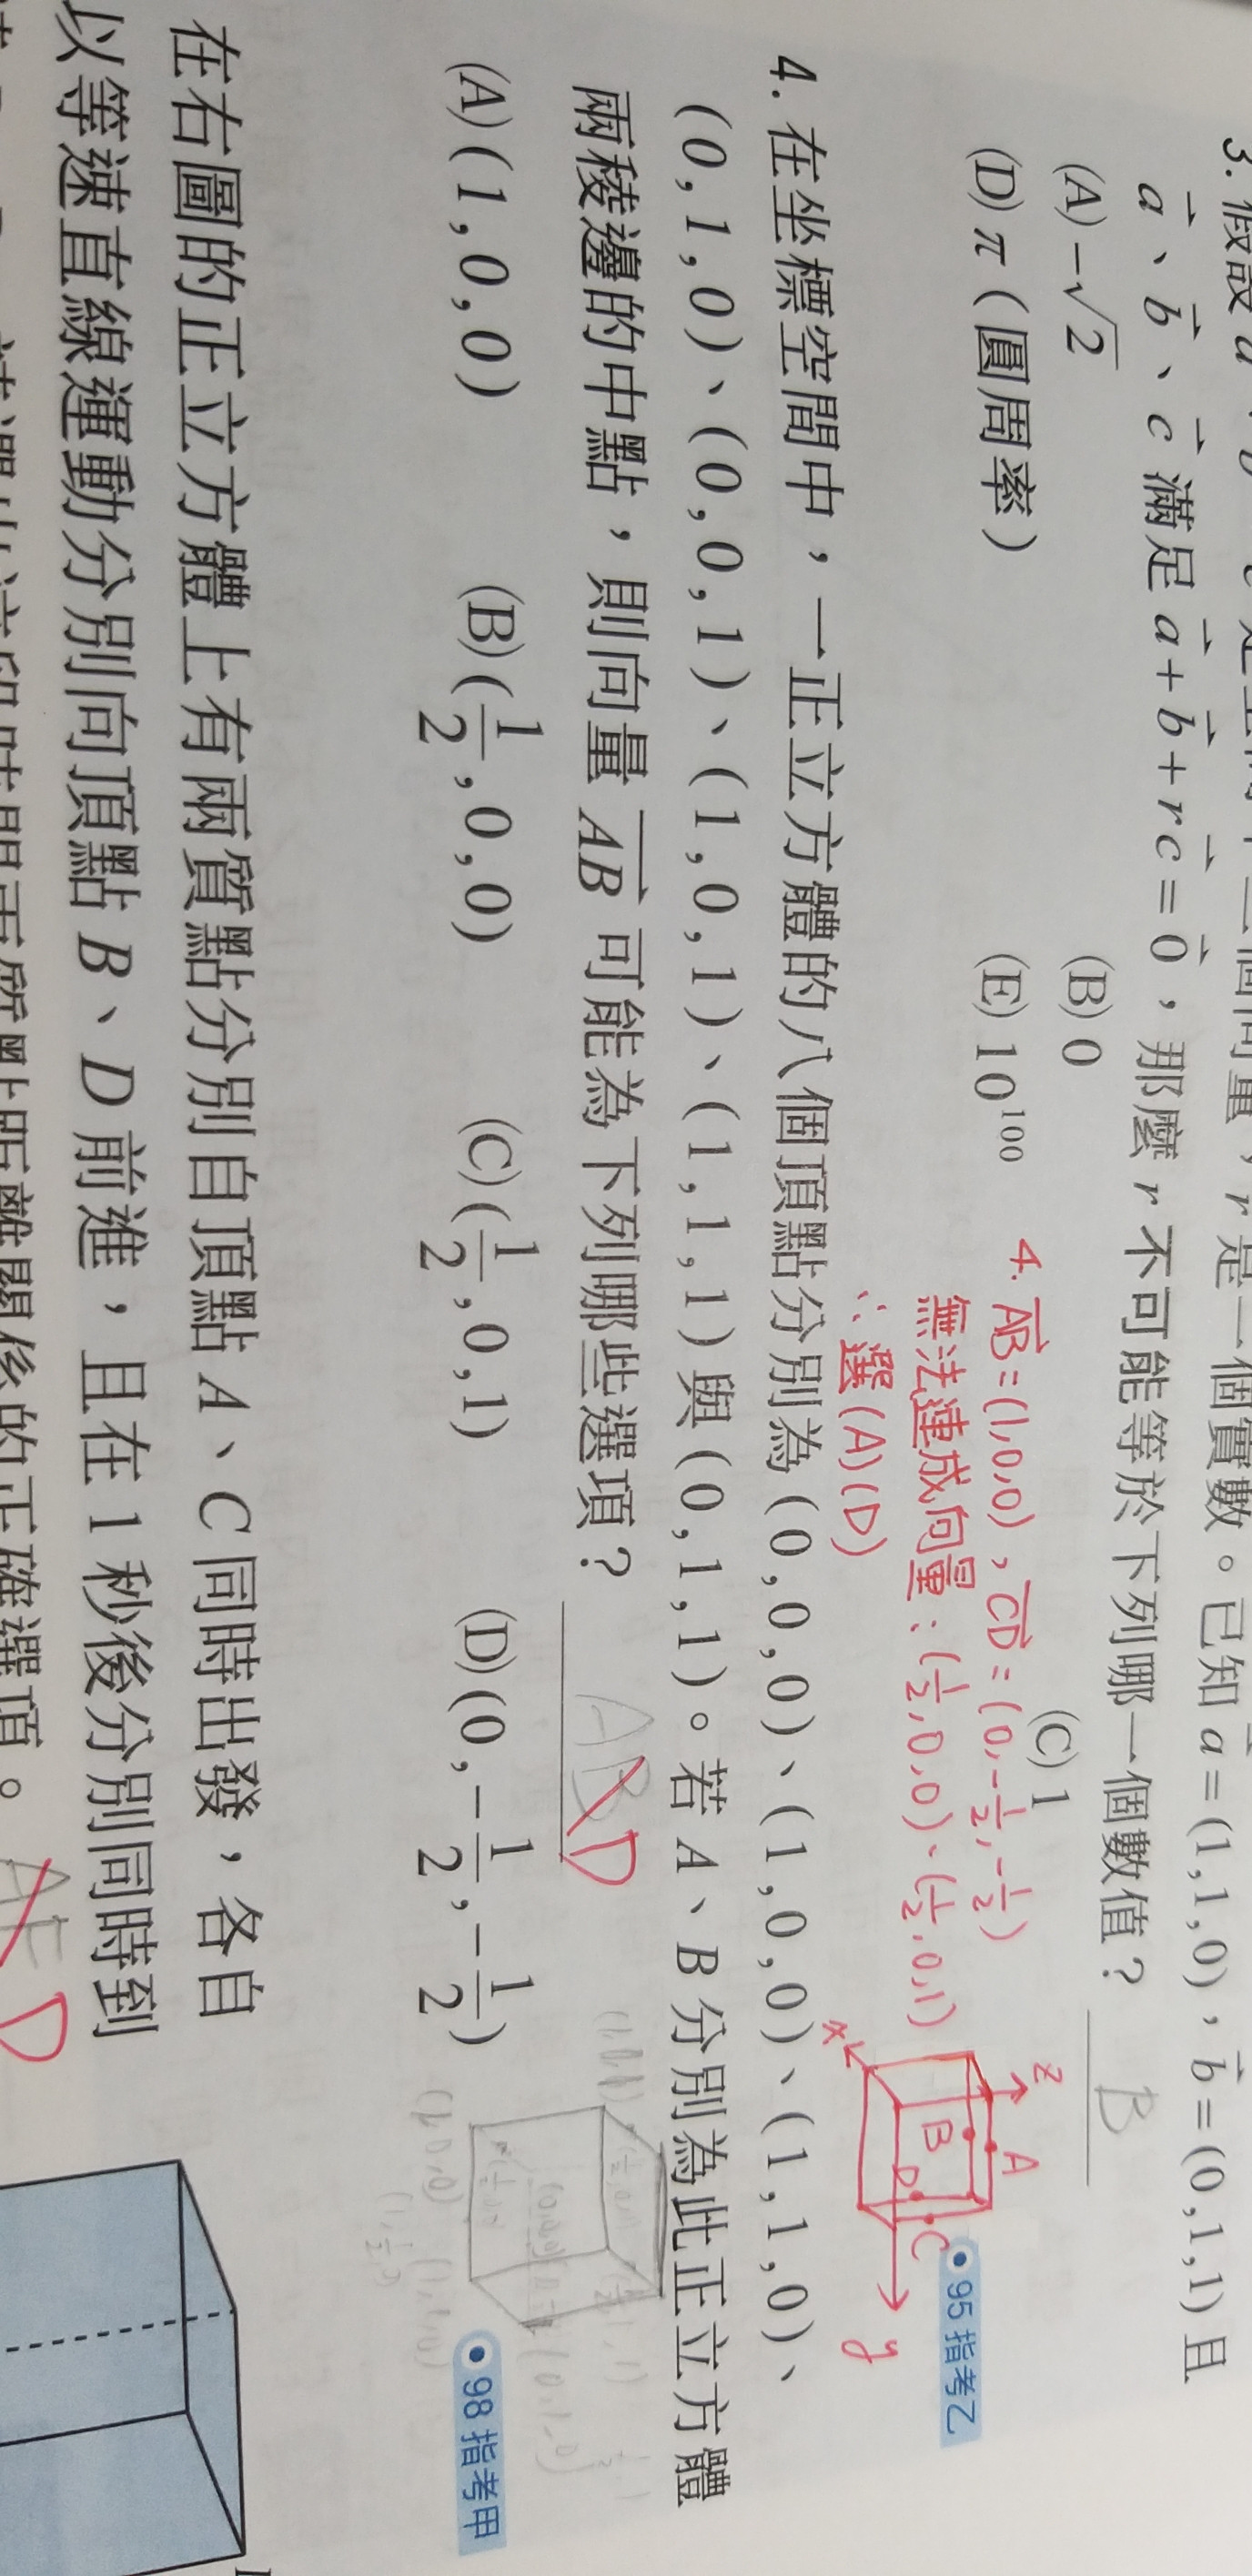 3. 假設
a、b、c 滿足 a + b + rc = 0，那麼 r 不可能等於下列哪一個數值？ B
是一個實數。已知 a = (1,1,0)，b = (0,1,1) 且
(A) -√2 (B) 0 (C) 1
(D) π（圓周率） (E) 10^100
95 指考乙
4. AB = (1,0,0)，CD = (0,-1/2,-1/2)
無法連成向量：(1/2,0,0)、(1/2,0,1)
∴選 (A)(D)
z
A
B
D
C
x
y
4. 在坐標空間中，一正立方體的八個頂點分別為 (0,0,0)、(1,0,0)、(1,1,0)、
(0,1,0)、(0,0,1)、(1,0,1)、(1,1,1) 與 (0,1,1)。若 A、B 分別為此正立方體
兩稜邊的中點，則向量 AB 可能為下列哪些選項？ ABD
(A) (1,0,0) (B) (1/2,0,0) (C) (1/2,0,1) (D) (0,-1/2,-1/2)
98 指考甲
在右圖的正立方體上有兩質點分別自頂點 A、C 同時出發，各自
以等速直線運動分別向頂點 B、D 前進，且在 1 秒後分別同時到
的正確選項。 AE D